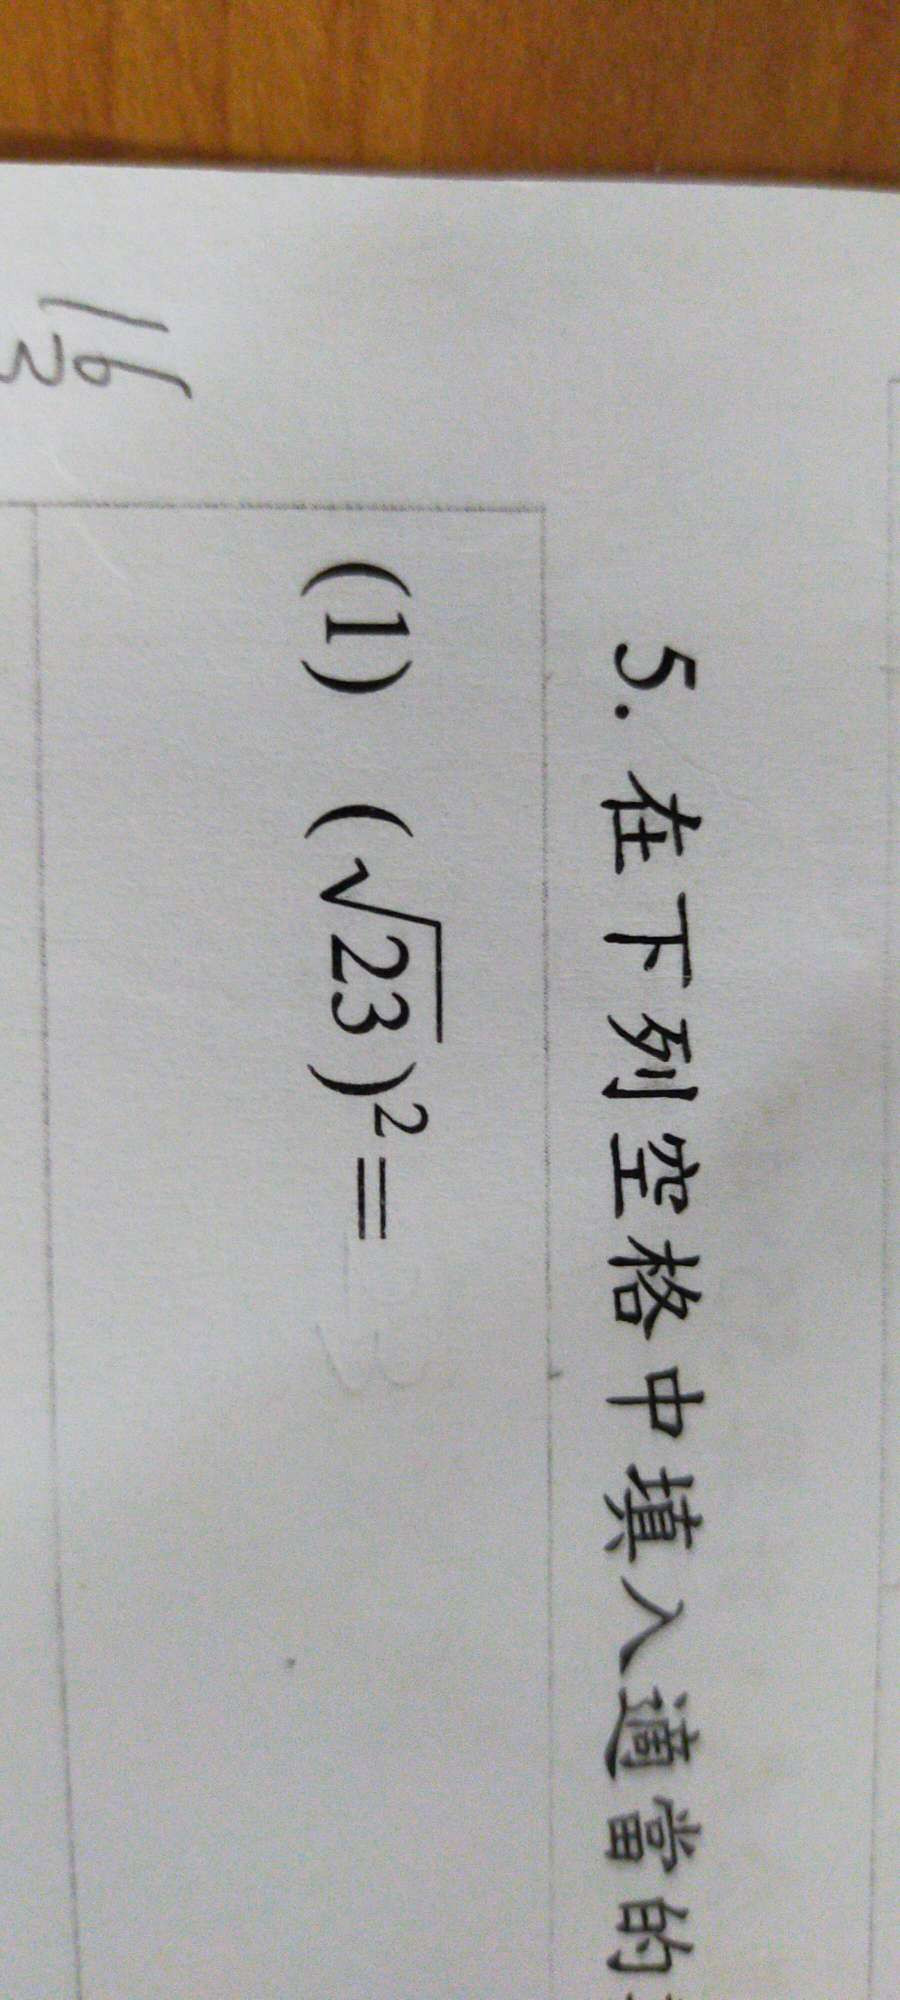 5. 在下列空格中填入適當的
(1) (√23)²=